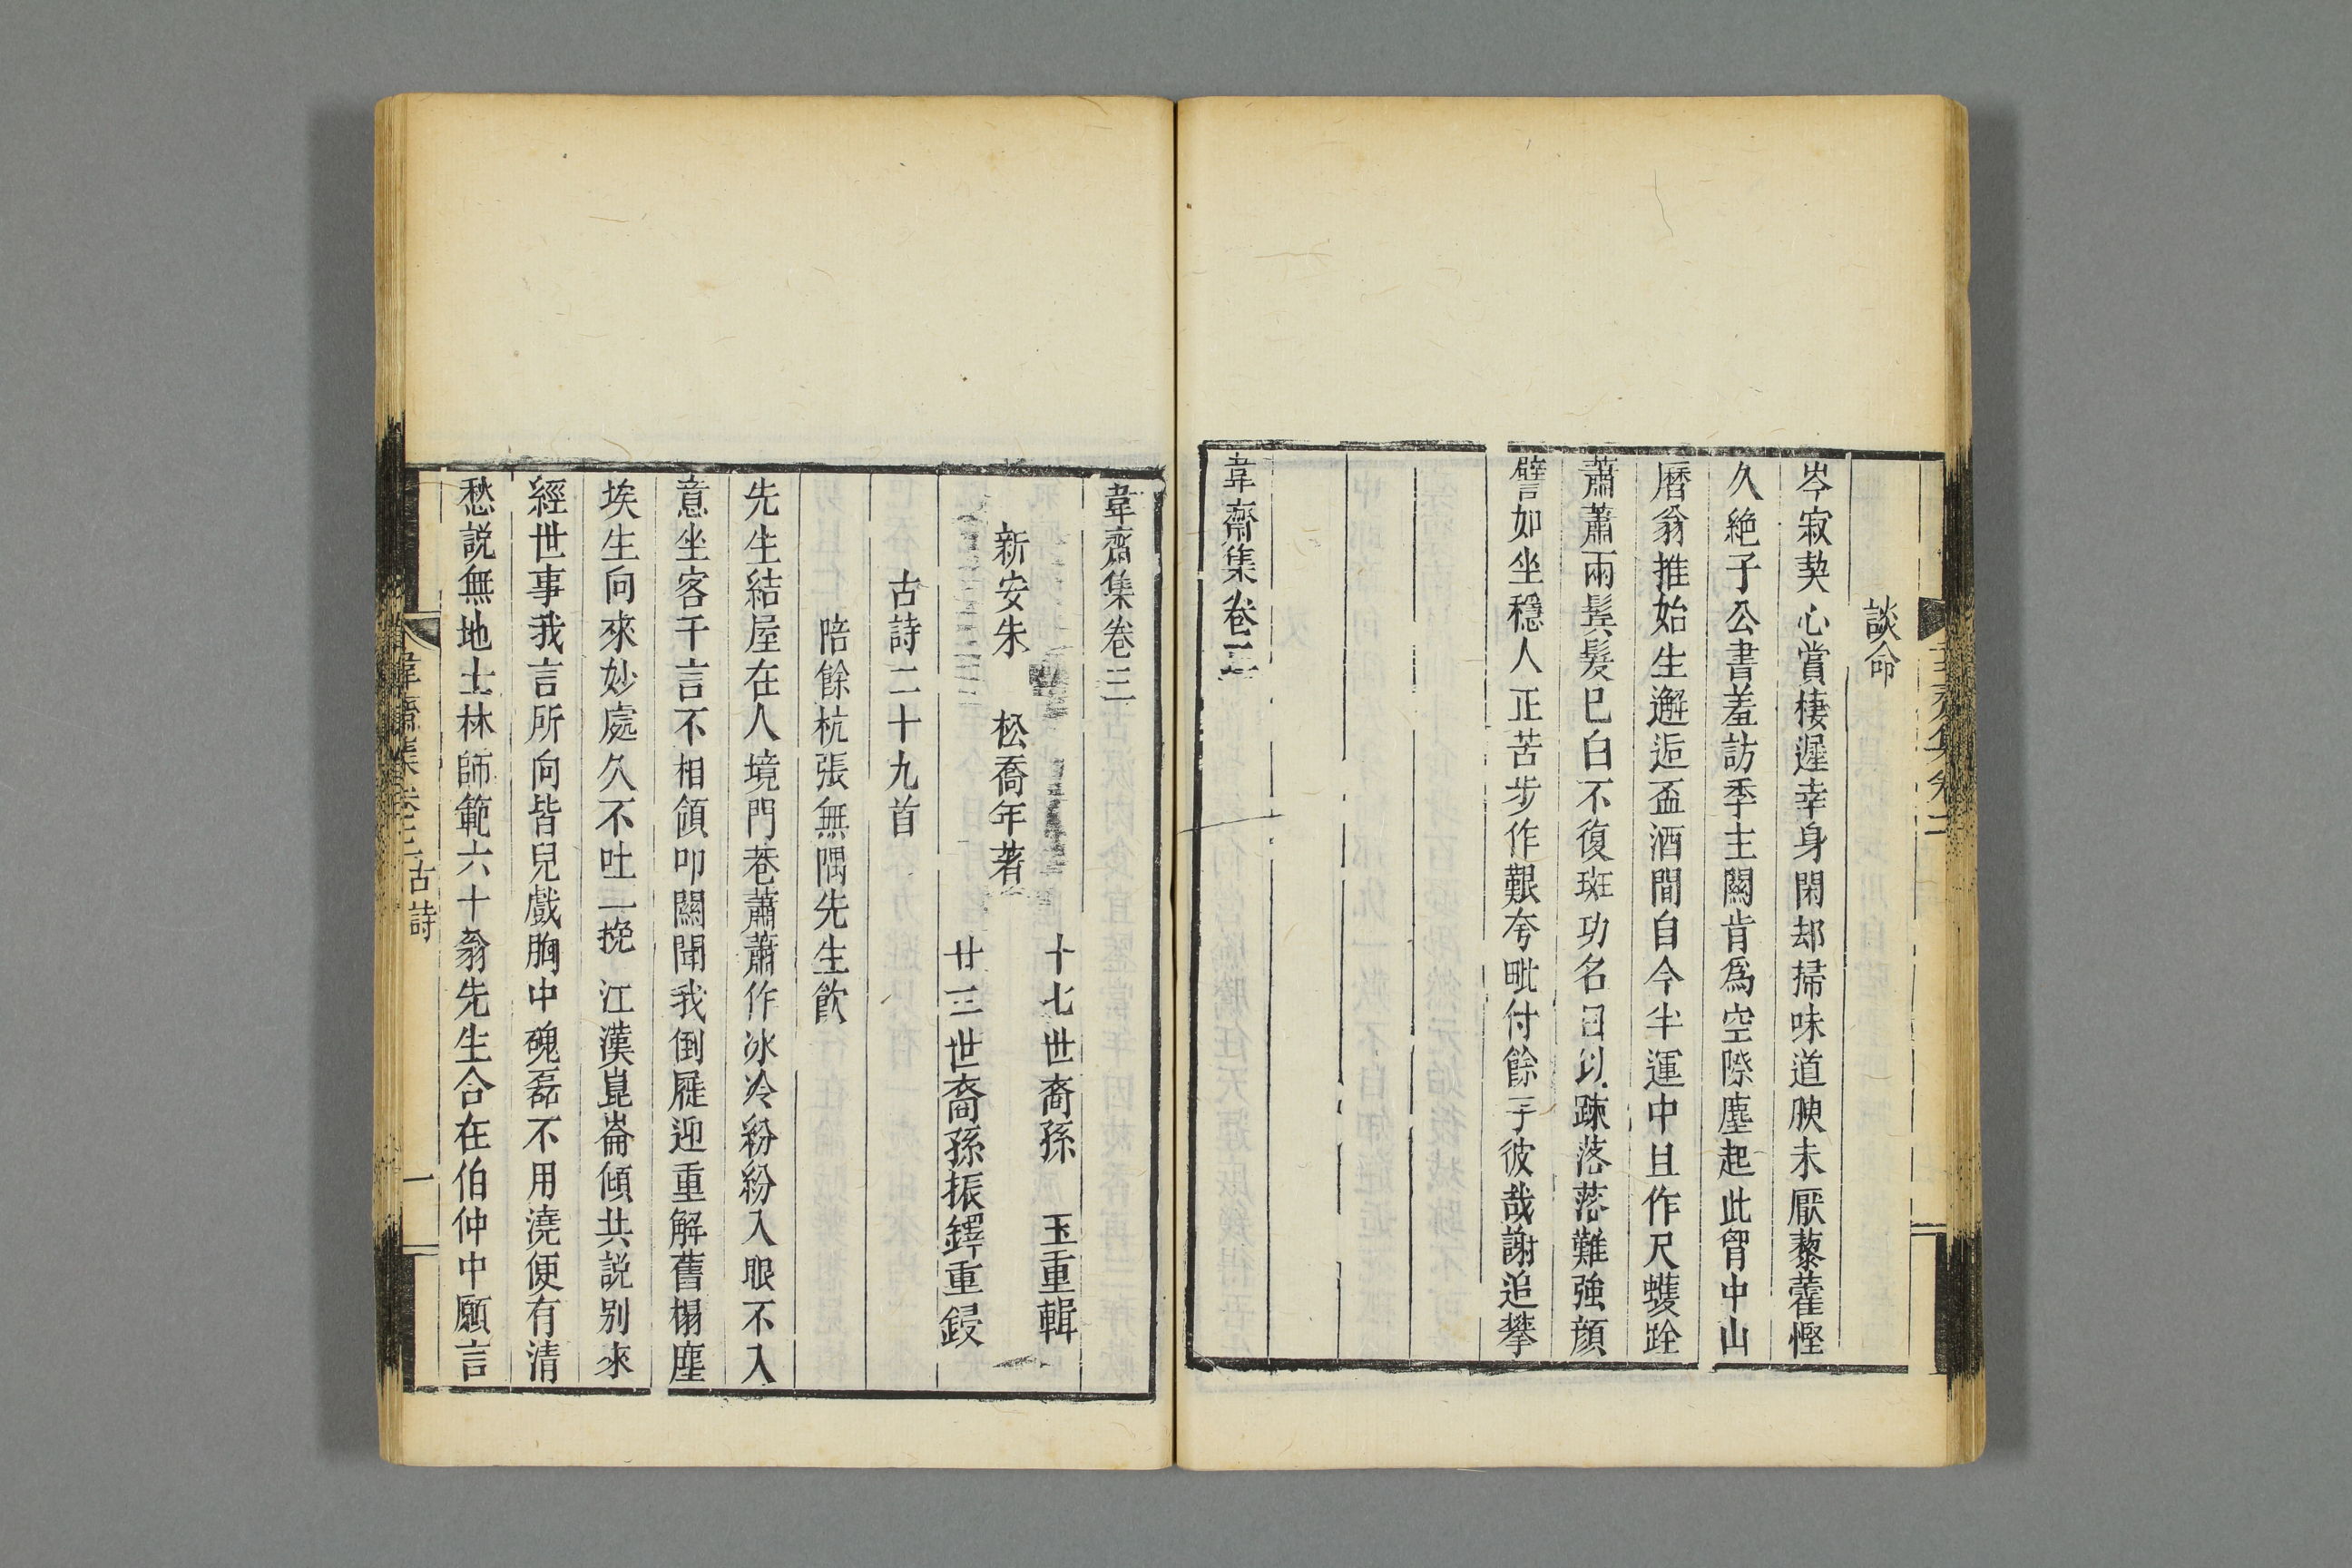 談命
岑寂契心賞棲遲幸身閑却掃味道腴未厭藜藿慳
久絶子公書羞訪季主關肯爲空隙塵起此胷中山
曆翁推始生邂逅盃酒間自今半運中且作尺蠖跧
蕭蕭兩鬓髮已白不復斑功名日以踈落落難強顔
譬如坐穩人正苦步作艱夸毗付餘子彼哉謝追攀
韋齋集卷二
韋齋集卷三
十七世裔孫 玉重輯
新安朱 松喬年著
廿三世裔孫振鐸重鋟
古詩二十九首
陪餘杭張無隅先生飲
先生結屋在人境門巷蕭蕭作冰冷紛紛入眼不入
意坐客千言不相領叩關聞我倒屣迎重解舊榻塵
埃生向來妙處久不吐一挽江漢崑崙傾共説别來
經世事我言所向皆兒戲胸中磈磊不用澆便有清
愁説無地士林師範六十翁先生合在伯仲中願言
韋齋集卷三 古詩 一